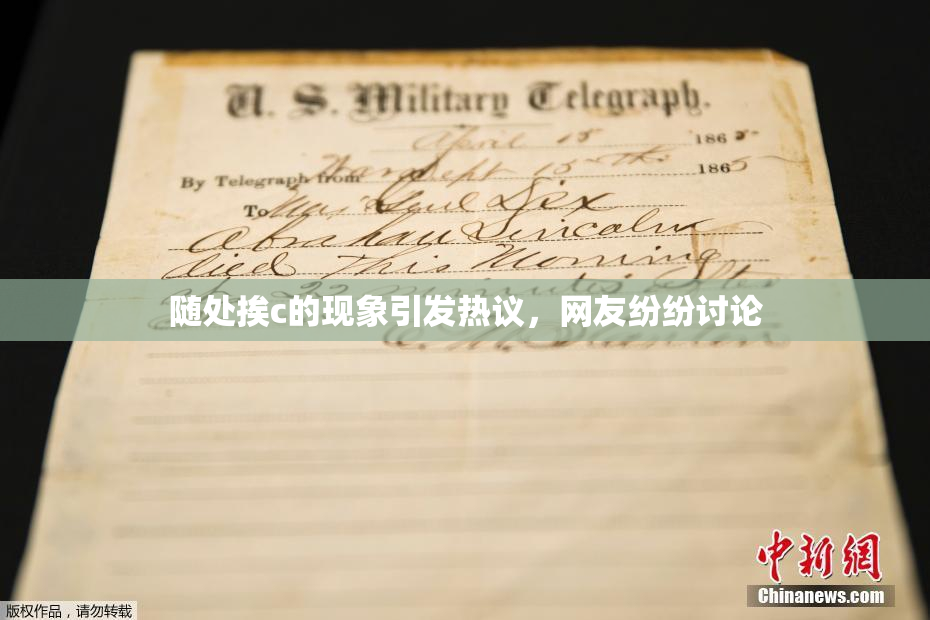 U. S. Military Telegraph.
April 15 1865
By Telegraph from War Dept 15th 1865
To Maj Genl Dix
Abraham Lincoln
died This Morning
at 22 minutes after
随处挨c的现象引发热议，网友纷纷讨论
中新网
Chinanews.com
版权作品，请勿转载